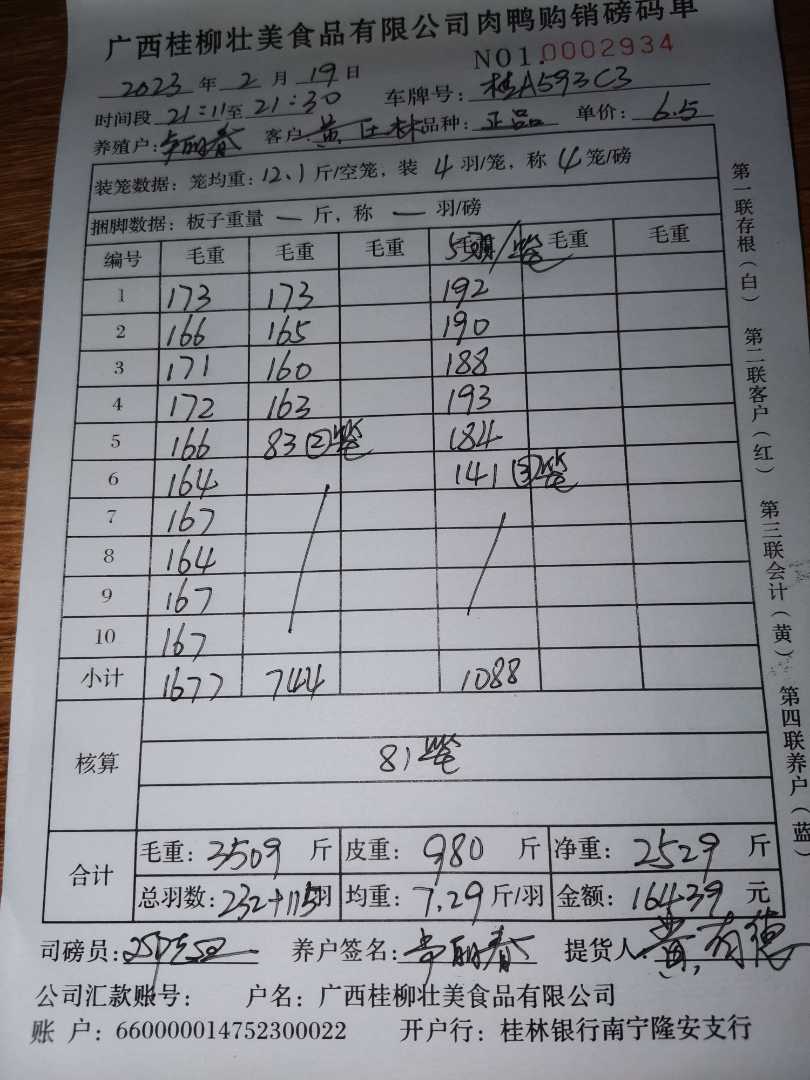 广西桂柳壮美食品有限公司肉鸭购销磅码单
NO1.0002934
2023 年 2 月 19 日
时间段 21:11至 21:30 车牌号: 桂A593C3
养殖户: 客户: 黄 林 品种: 正品 单价: 6.5
装笼数据: 笼均重: 12.1 斤/空笼, 装 4 羽/笼, 称 4 笼/磅
捆脚数据: 板子重量 — 斤, 称 — 羽/磅
编号 毛重 毛重 毛重 5 /笼 毛重 毛重
1 173 173 192
2 166 165 190
3 171 160 188
4 172 163 193
5 166 83 ②笼 184
6 164 141 ③笼
7 167
8 164
9 167
10 167
小计 1677 744 1088
核算 81笼
合计 毛重: 3509 斤 皮重: 980 斤 净重: 2529 斤
总羽数: 232+115羽 均重: 7.29 斤/羽 金额: 16439 元
司磅员: 养户签名: 提货人: 黄有德
公司汇款账号: 户名: 广西桂柳壮美食品有限公司
账 户: 660000014752300022 开户行: 桂林银行南宁隆安支行
第一联存根(白) 第二联客户(红) 第三联会计(黄) 第四联养户(蓝)